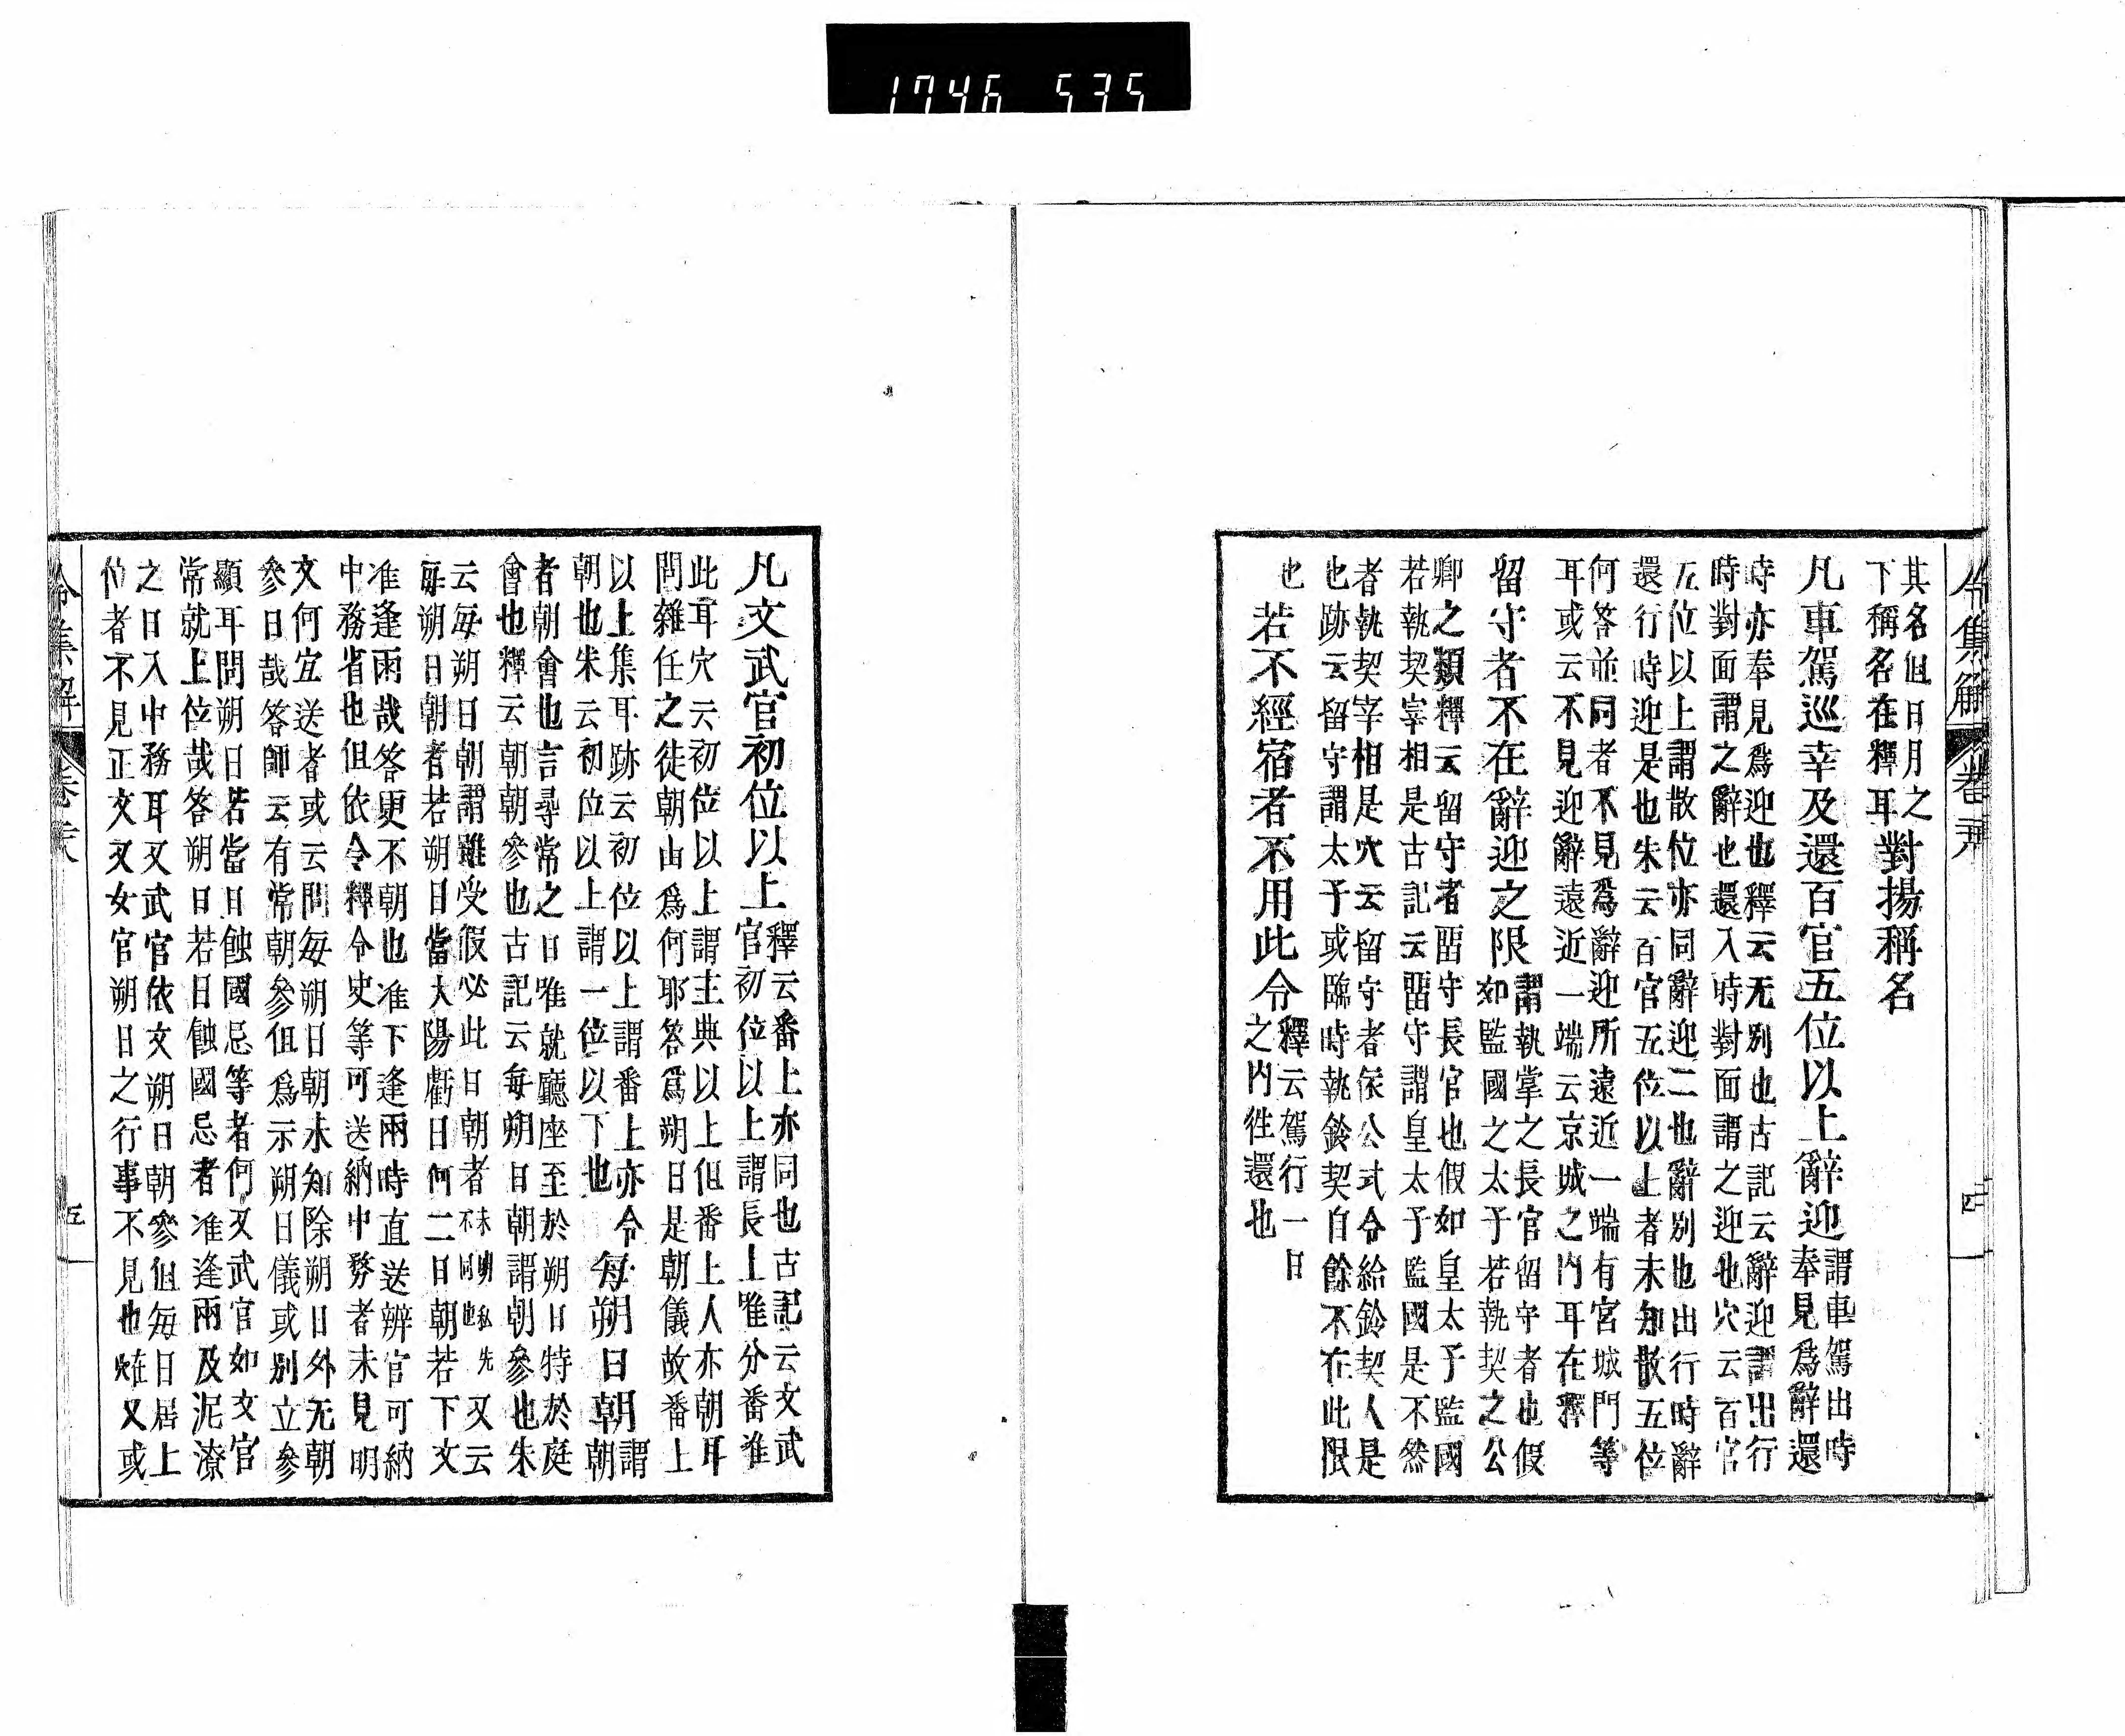 1746 535
令集解 卷
四
其名但日月之
下稱名在釋耳
對揚稱名
凡車駕巡幸及還百官五位以上辭迎
謂車駕出時
奉見爲辭還
時亦奉見爲迎也釋云无別也古記云辭迎謂出行
時對面謂之辭也還入時對面謂之迎也穴云百官
五位以上謂散位亦同辭迎二也辭別也出行時辭
還行時迎是也朱云百官五位以上者未知散五位
何答並同者不見爲辭迎所遠近一端有宮城門等
耳或云不見迎辭遠近一端云京城之門耳在釋
留守者不在辭迎之限
謂執掌之長官留守者也假
如監國之太子若執契之公
卿之類釋云留守者留守長官也假如皇太子監國
若執契宰相是古記云留守謂皇太子監國是不然
者執契宰相是穴云留守者依公式令給鈴契人是
也跡云留守謂太子或臨時執鈴契自餘不在此限
也
若不經宿者不用此令
釋云駕行一日
之內往還也
凡文武官初位以上
釋云番上亦同也古記云文武
官初位以上謂長上唯分番准
此耳穴云初位以上謂主典以上但番上人亦朝耳
問雜任之徒朝由爲何耶答爲朔日是朝儀故番上
以上集耳跡云初位以上謂番上亦令
朝也朱云初位以上謂一位以下也
每朔日朝
謂
朝
者朝會也言尋常之日唯就廳座至於朔日特於庭
會也釋云朝朝參也古記云每朔日朝謂朝參也朱
云每朔日朝謂雖受假必此日朝者
未明私先
不同也
又云
每朔日朝者若朔日當大陽虧日何二日朝若下文
准逢雨哉答更不朝也准下逢雨時直送辨官可納
中務省也但依令釋令史等可送納中務者未見明
文何宜送者或云問每朔日朝未知除朔日外无朝
參日哉答師云有常朝參但爲示朔日儀或別立參
顯耳問朔日若當日蝕國忌等者何又武官如文官
常就上位哉答朔日若日蝕國忌者准逢雨及泥潦
之日入中務耳又武官依文朔日朝參但每日居上
位者不見正文又女官朔日之行事不見也雖又或
令集解 卷
五